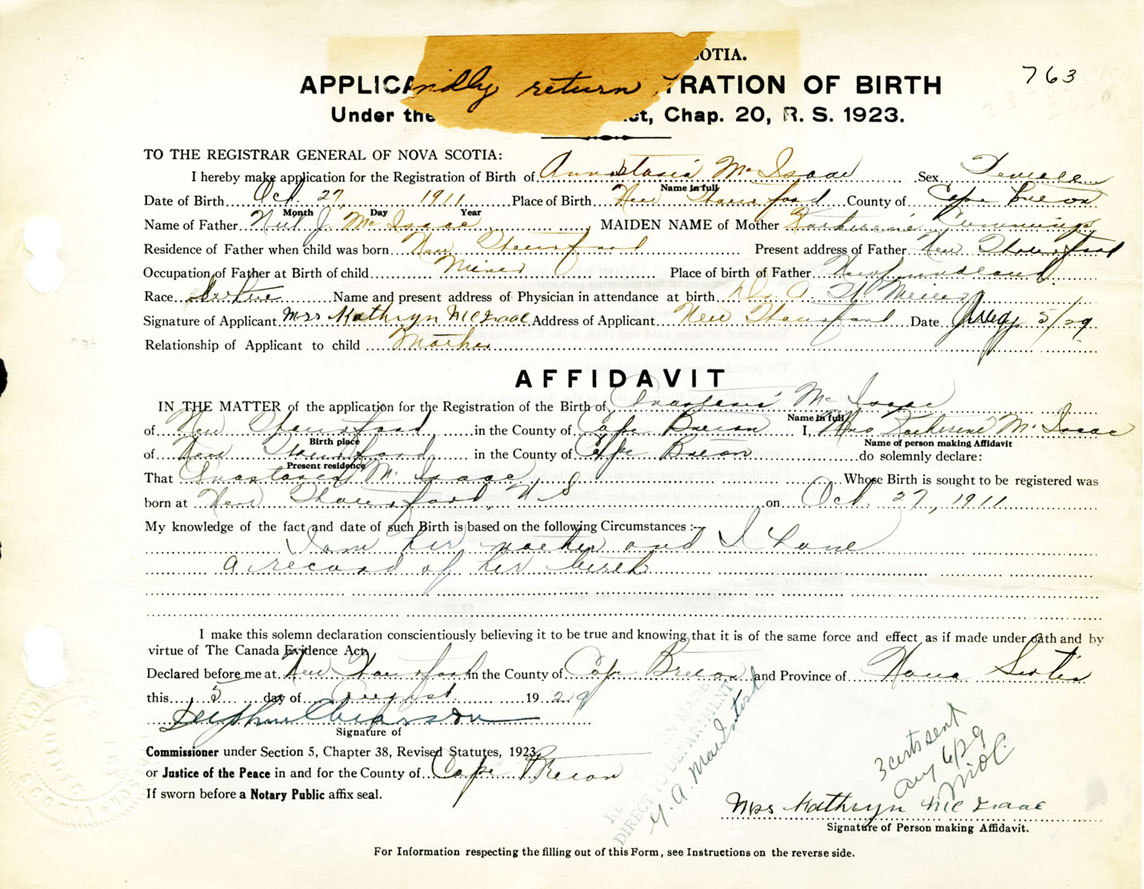 OTIA.
763
APPLICA ndly return TRATION OF BIRTH
Under the t, Chap. 20, R. S. 1923.
TO THE REGISTRAR GENERAL OF NOVA SCOTIA:
I hereby make application for the Registration of Birth of Annstasia McIsaac Sex Female
Name in full
Date of Birth Oct. 27, 1911 Place of Birth New County of Cape Breton
Month Day Year
Name of Father Neil J. McIsaac MAIDEN NAME of Mother Katherine Cummings
Residence of Father when child was born New Present address of Father New
Occupation of Father at Birth of child Miner Place of birth of Father Newfoundland
Race Name and present address of Physician in attendance at birth Dr. A.
Signature of Applicant Mrs Kathryn McIsaac Address of Applicant New Date Aug 5/29
Relationship of Applicant to child Mother
AFFIDAVIT
IN THE MATTER of the application for the Registration of the Birth of McIsaac
Name in full
of New in the County of Cape Breton I, Mrs Katherine McIsaac
Birth place Name of person making Affidavit
of New in the County of Cape Breton do solemnly declare:
Present residence
That McIsaac Whose Birth is sought to be registered was
born at New N S on Oct. 27, 1911
My knowledge of the fact and date of such Birth is based on the following Circumstances :-
I am her mother and I have
a record of her birth
I make this solemn declaration conscientiously believing it to be true and knowing that it is of the same force and effect as if made under oath and by
virtue of The Canada Evidence Act,
Declared before me at New in the County of Cape Breton and Province of Nova Scotia
this 5 day of August 1929
Signature of
Commissioner under Section 5, Chapter 38, Revised Statutes, 1923
or Justice of the Peace in and for the County of Cape Breton
If sworn before a Notary Public affix seal.
DIRECT TO DEPARTMENT
3 certs sent
Aug 6/29
Mrs Kathryn McIsaac
Signature of Person making Affidavit.
For Information respecting the filling out of this Form, see Instructions on the reverse side.